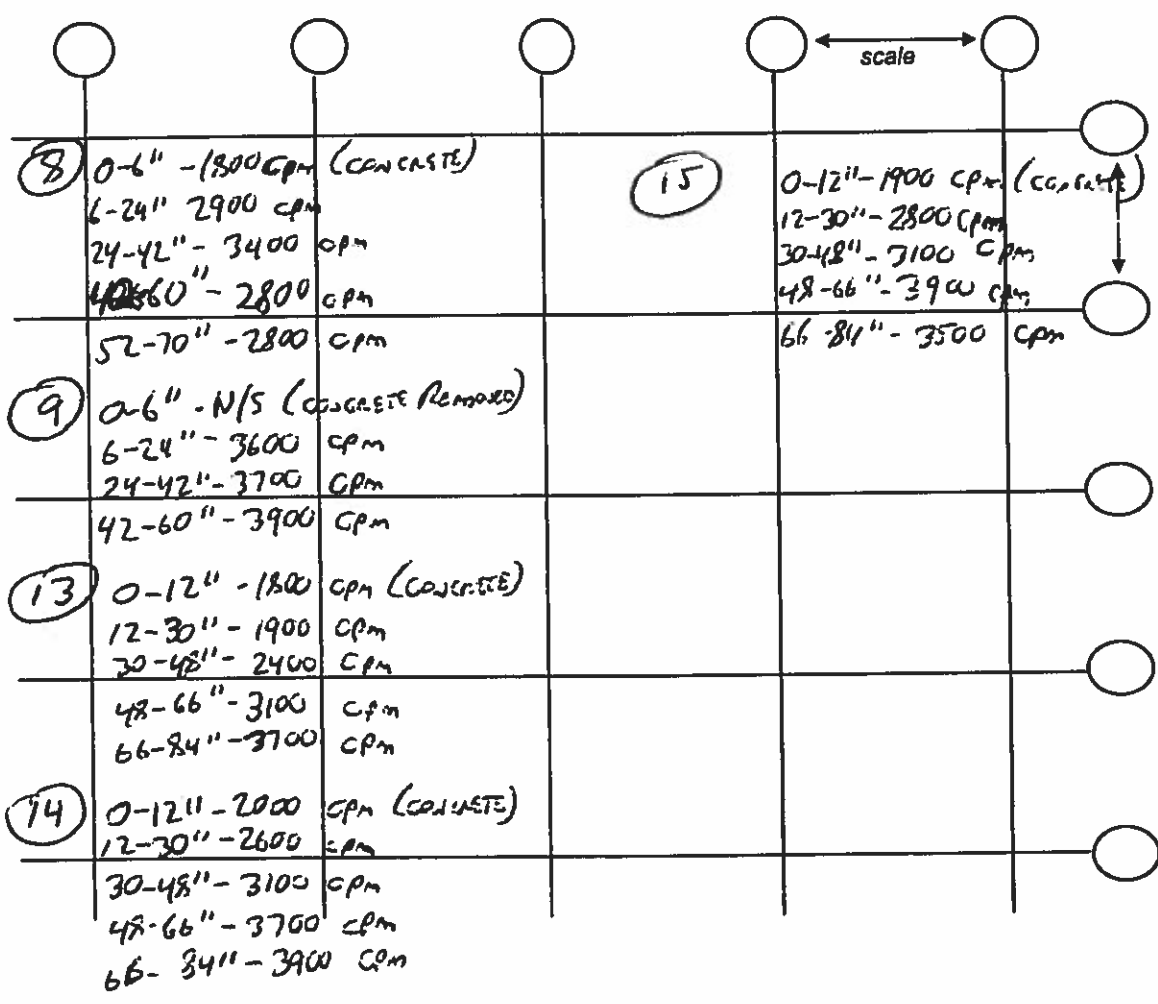 scale
8 0-6" - 1800 cpm (CONCRETE)
6-24" 2900 cpm
24-42" - 3400 cpm
60" - 2800 cpm
52-70" - 2800 cpm
9 0-6" - N/S (CONCRETE REMOVED)
6-24" - 3600 cpm
24-42" - 3700 cpm
42-60" - 3900 cpm
13 0-12" - 1800 cpm (CONCRETE)
12-30" - 1900 cpm
30-48" - 2400 cpm
48-66" - 3100 cpm
66-84" - 3700 cpm
14 0-12" - 2000 cpm (CONCRETE)
12-30" - 2600 cpm
30-48" - 3100 cpm
48-66" - 3700 cpm
66-84" - 3900 cpm
15 0-12" - 1900 cpm (CONCRETE)
12-30" - 2800 cpm
30-48" - 3100 cpm
48-66" - 3900 cpm
66-84" - 3500 cpm